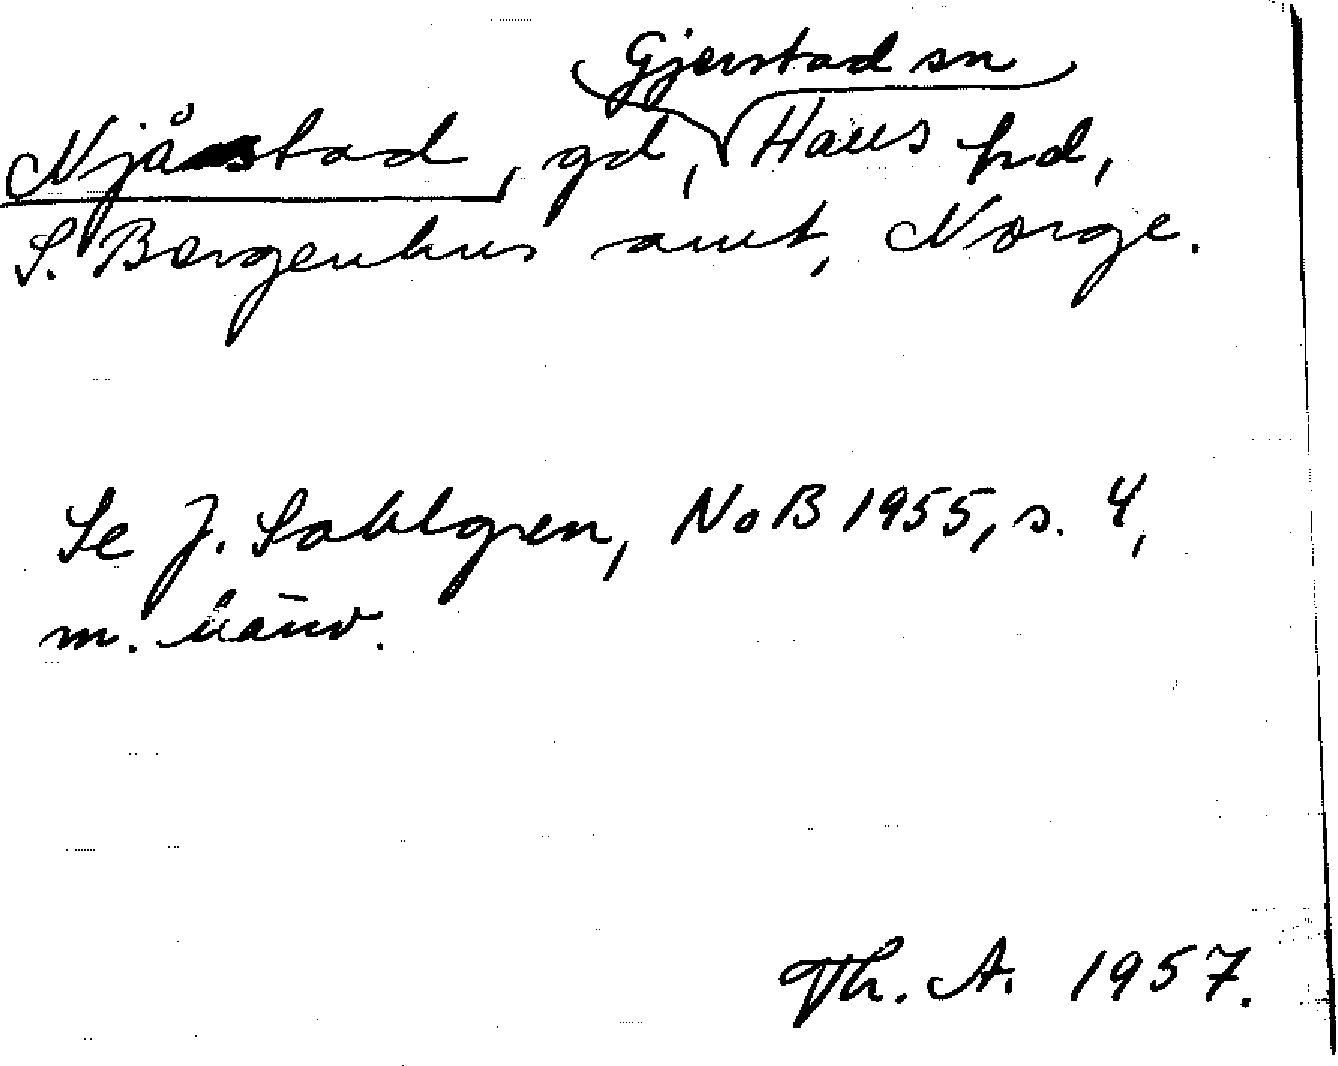 Gjerstad sn
Njåstad, gd, Haus pd,
S. Bergenhus amt, Norge.
Se J. Sahlgren, NoB 1955, s. 4,
m. hänv.
Th. A. 1957.